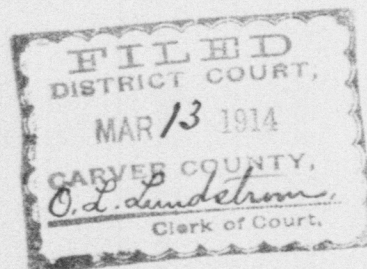 FILED
DISTRICT COURT,
MAR 13 1914
CARVER COUNTY,
O. L. Lundstrom.
Clerk of Court.